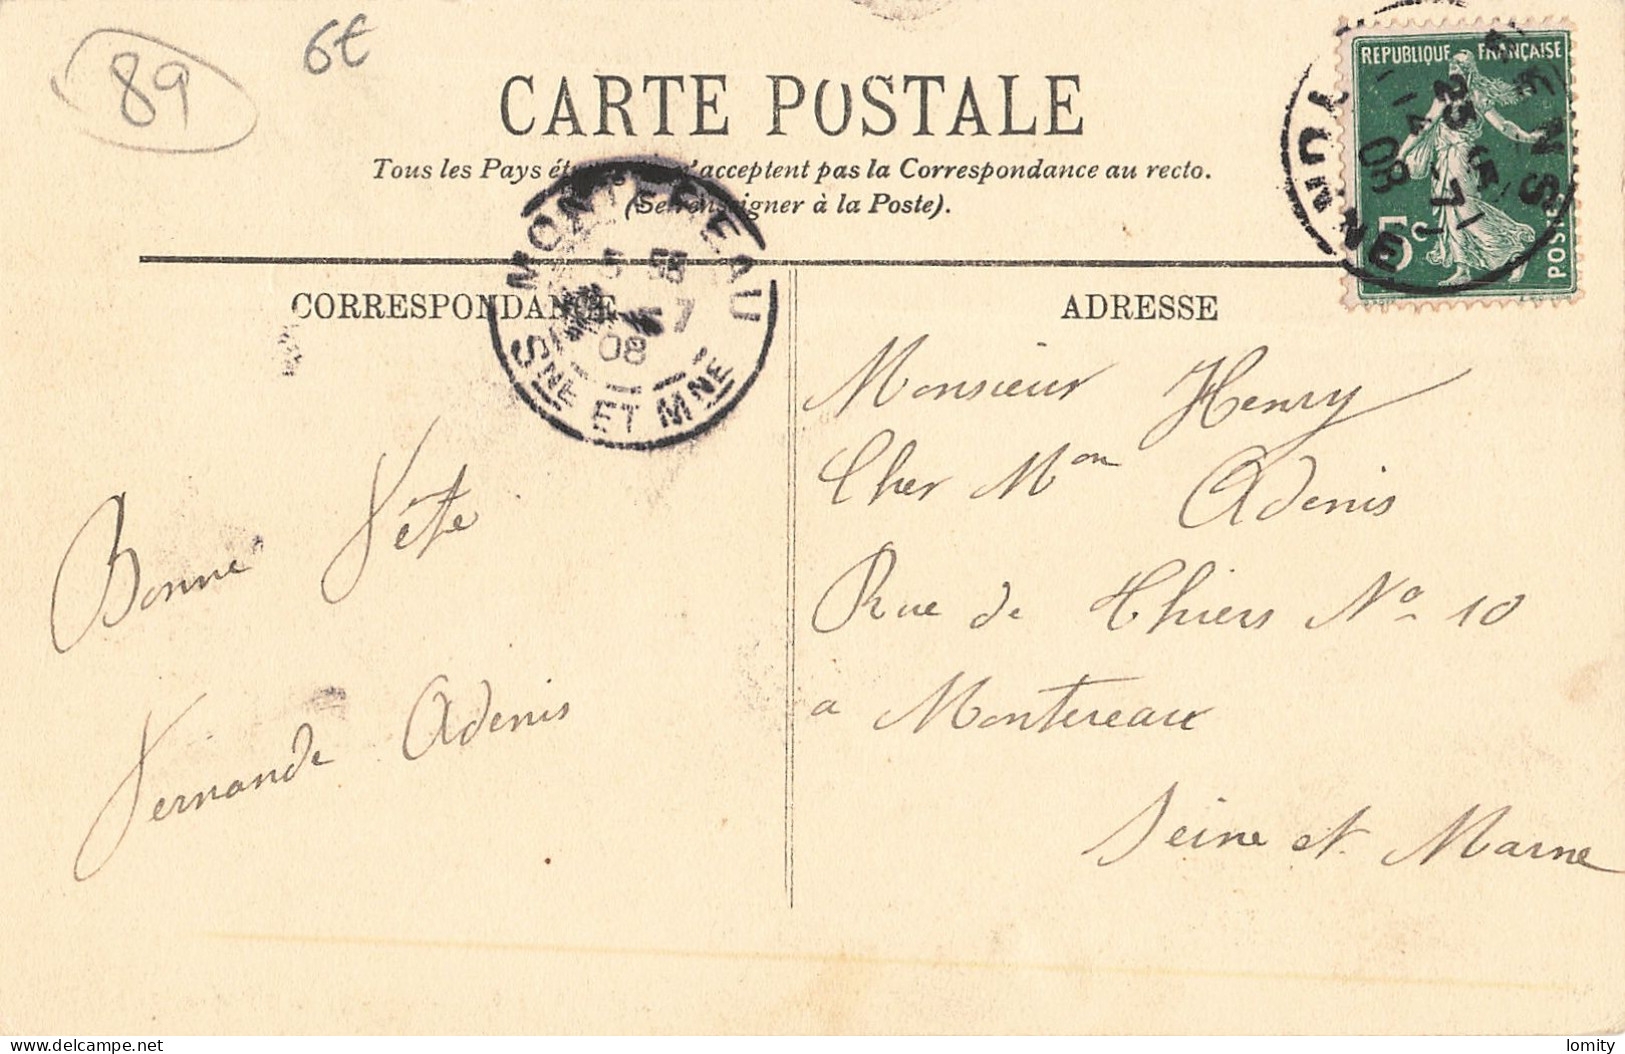 89
6€
CARTE POSTALE
Tous les Pays acceptent pas la Correspondance au recto.
(Se renseigner à la Poste).
REPUBLIQUE FRANÇAISE
5c
POSTES
SENS
YONNE
25
-7
08
MONTEREAU
-7
08
SNE ET MNE
CORRESPONDANCE
ADRESSE
Bonne Fête
Fernande Adenis
Monsieur Henry
Cher Mon Adenis
Rue de Thiers No 10
a Montereau
Seine et Marne
lomity